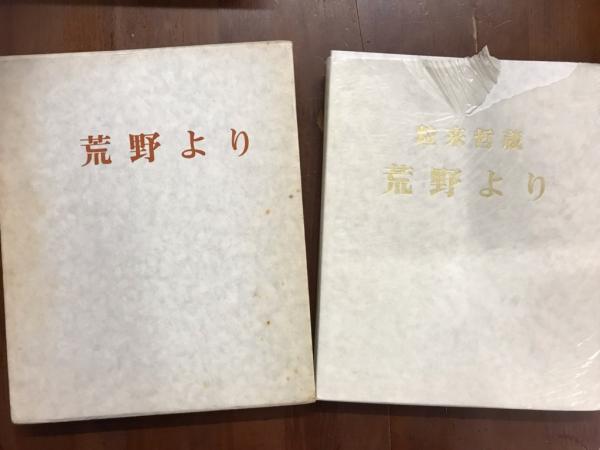 荒野より
近来哲蔵
荒野より